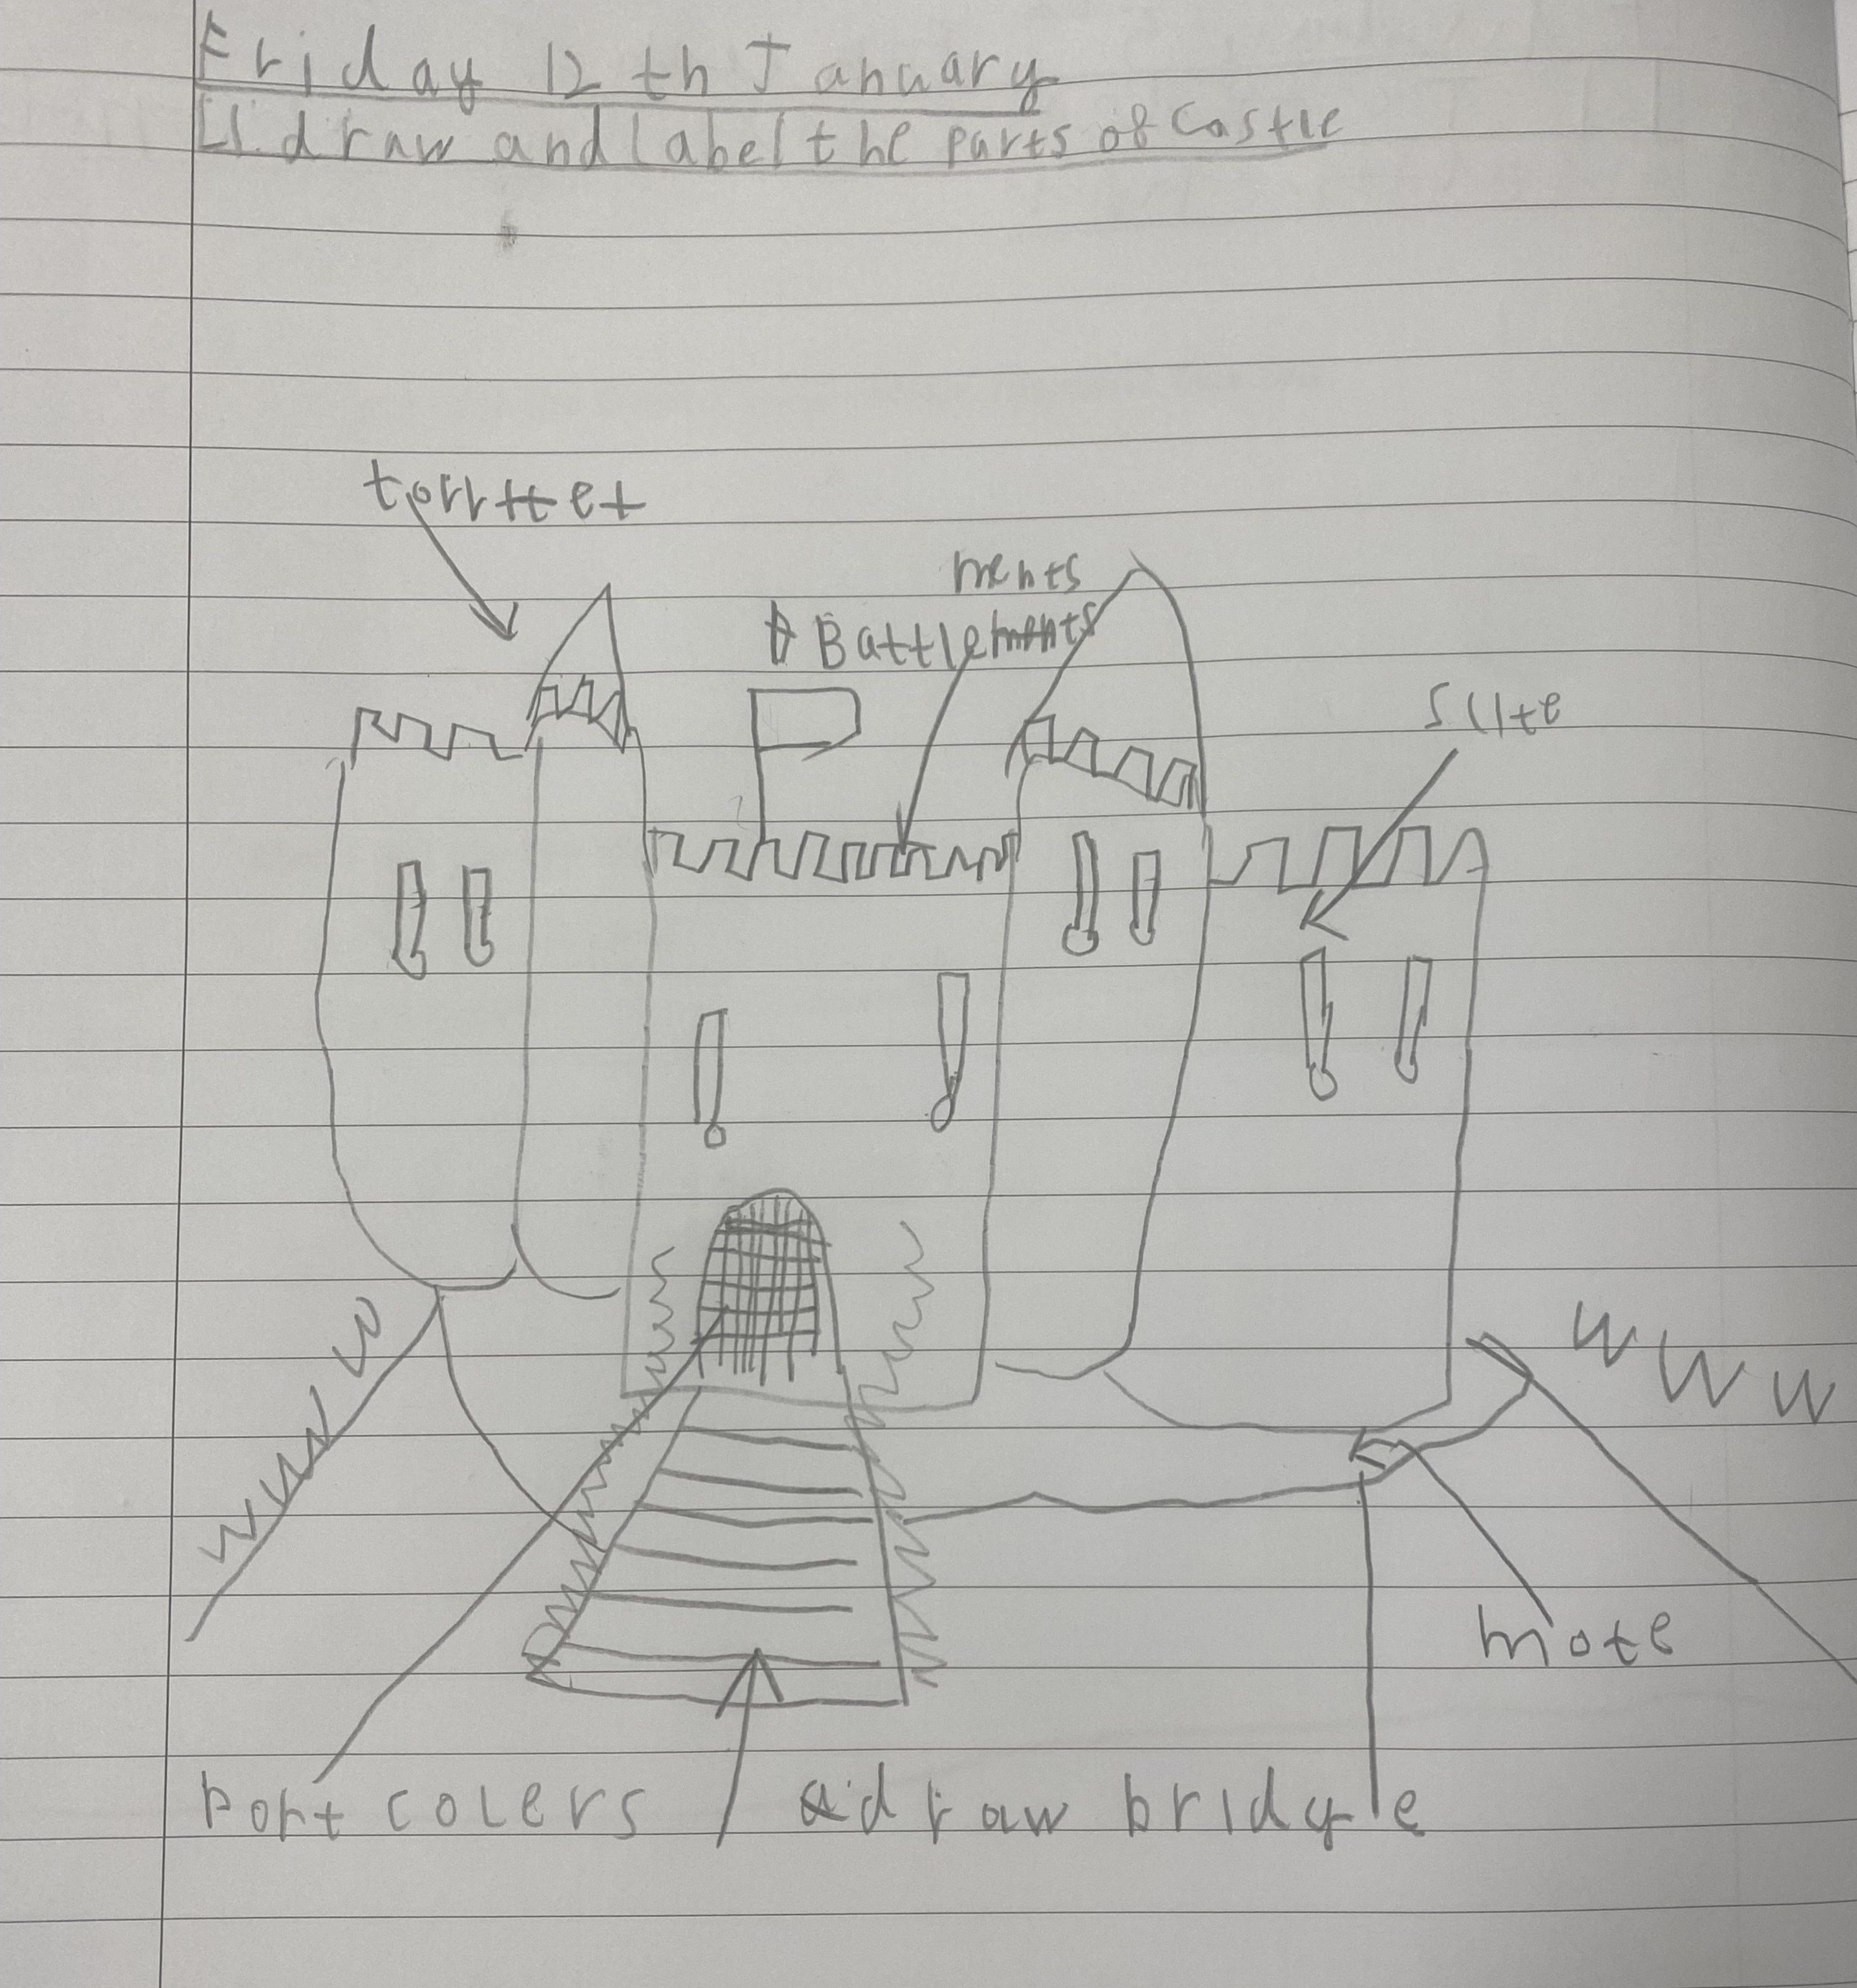 Friday 12th January
LI draw and label the parts of castle
torrttet
ments
Battlements
sllte
W W W W
W W W
mote
Port colers
draw bridge